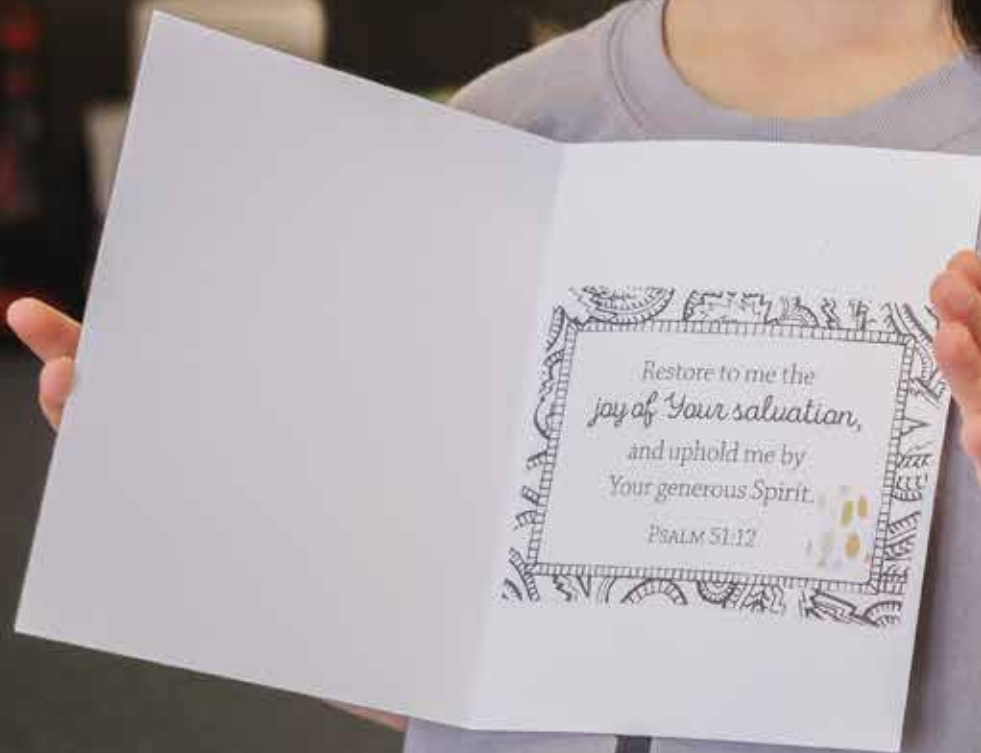 Restore to me the
joy of Your salvation,
and uphold me by
Your generous Spirit.
PSALM 51:12